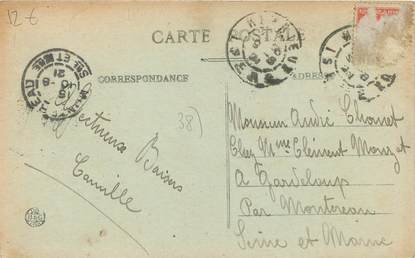 12 €
CARTE POSTALE
CORRESPONDANCE
ADRESSE
38)
Affectueux Baisers
Camille
Monsieur André
Chez Mme Clément
A Gardeloup
Par Montereau
Seine et Marne